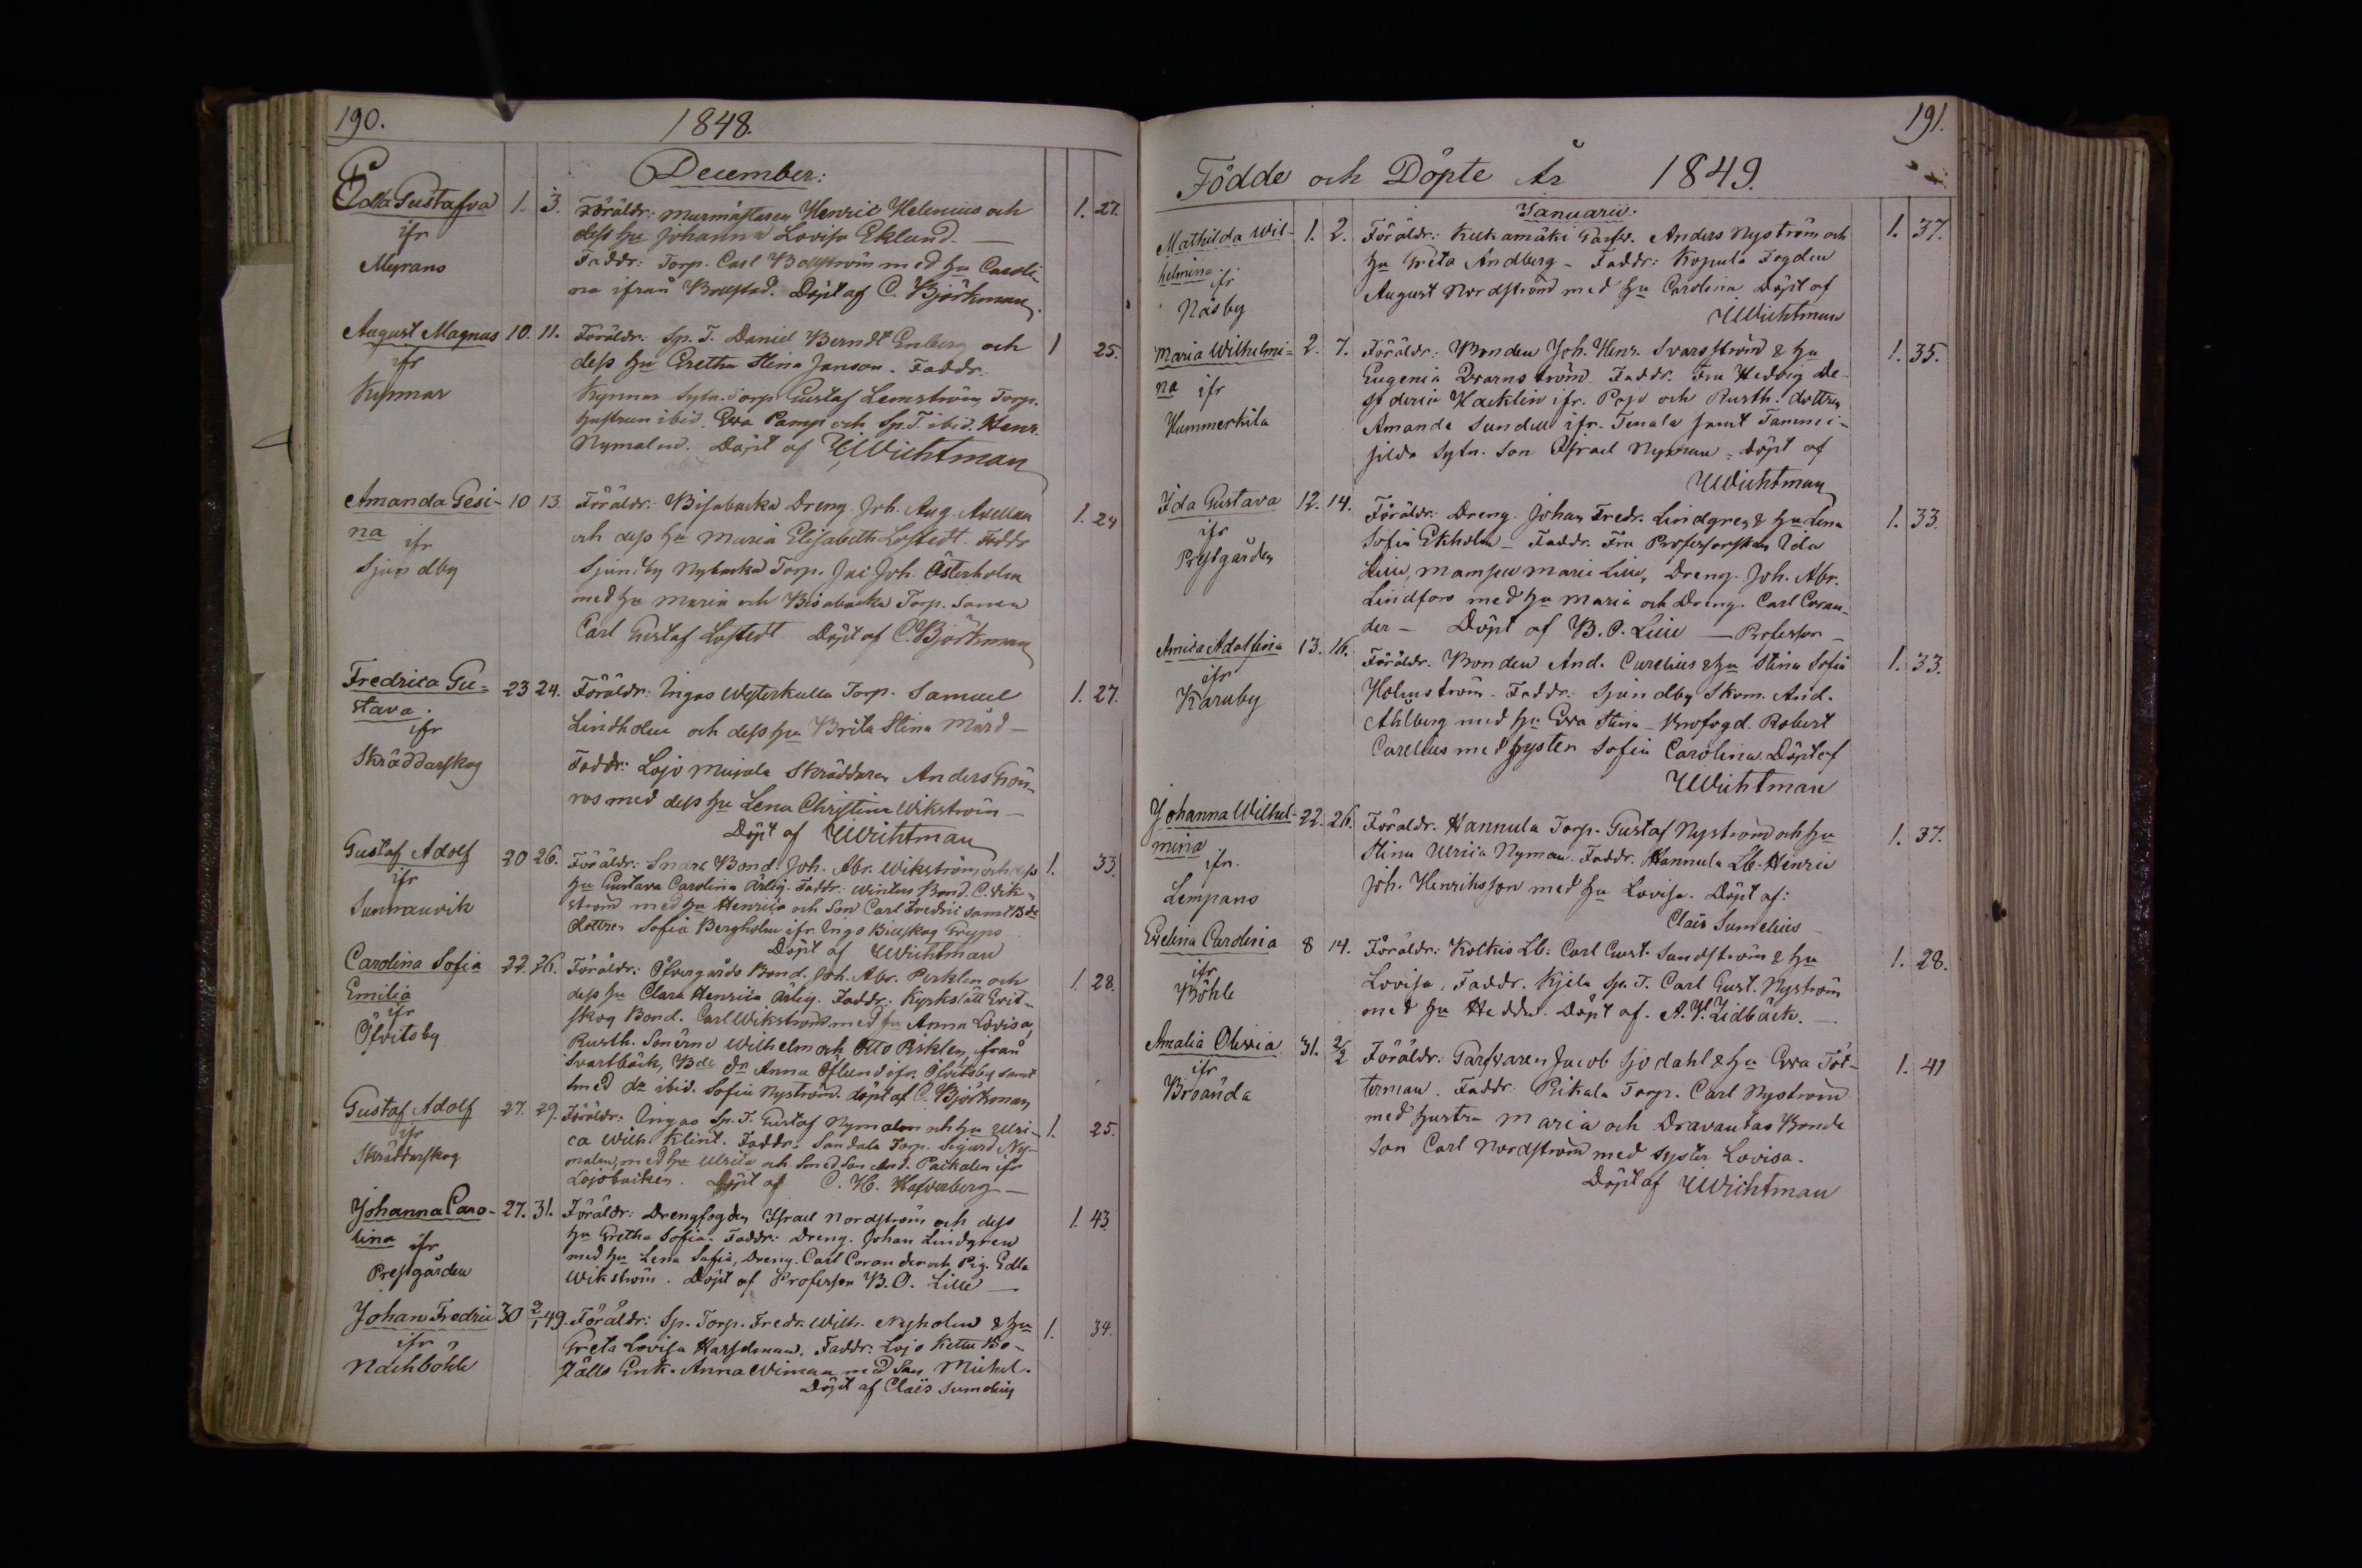 190.
1848.
December:
Edla Gustafva 1. 3. Föräldr: Murmästaren Henric Helenius och 1. 27.
ifr dess hu Johanna Lovisa Eklund. —
Myrans Faddr: Torp. Carl Bollström med hu Caroli
na ifrån Bollstad. Döpt af C. Björkman.
August Magnus 10. 11. Föräldr: Sp. T. Daniel Berndt Enberg och 1 25.
ifr dess hu Gretha Stina Janson. Faddr.
Kynnar Kynnar Sytn. Torp Gustaf Lemström Torp.
hustrun ibid. Eva Pamp och Sp. T. ibid. Henr.
Nymalm. Döpt af Wichtman
Amanda Gesi- 10 13. Föräldr: Bisabacka Dreng Joh. Aug. Avellan 1. 24
na ifr och dess hu Maria Elisabeth Lofstedt. Faddr
Sjundby Sjundby Nybacka Torp. Joh. Österholm
med hu Maria och Bisabacka Torp. Sonen
Carl Gustaf Lofstedt. Döpt af C. Björkman
Fredrica Gu- 23 24. Föräldr: Ingas Westerkulla Torp. Samuel 1. 27.
stava. Lindholm och dess hu Brita Stina Mård —
ifr
Skräddarskog Faddr: Lojo Skräddaren Anders Grön-
ros med dess hu Lena Christina Wikström —
Döpt af Wichtman
Gustaf Adolf 20 26. Föräldr: Snare Bond. Joh. Abr. Wikström och dess 1. 33.
ifr hu Gustava Carolina Ärlig. Faddr: Bond. C. Wik-
Sunnanvik ström med hu Henrica och Son Carl Fredric samt Bde
dottren Sofia Bergholm ifr. Ingo Billskog Gryps
Döpt af Wichtman
Carolina Sofia 22. 26. Föräldr: Öfvergårds Bond. Joh. Abr. Perklen och 1. 28.
Emilia dess hu Clara Henrica Ärlig. Faddr: Kyrkslätt Evit-
ifr skog Bond. Carl Wikström med hu Anna Lovisa,
Öfvitsby Rusth. Sönerne Wilhelm och Otto Perklen, ifrån
Svartbäck, Bde Dr Anna Öflund ifr. Öfvitsby samt
Smed dr ibid. Sofia Nyström. döpt af C. Björkman
Gustaf Adolf 27. 29. Föräldr: Ingas Sp. T. Gustaf Nymalm och hu Ulri- 1. 25.
ifr ca Wilh. Klint. Faddr: Sandala Torp. Sigurd Ny-
Skräddarskog malm, med hu Ulrica och Smed Son And. Packalen ifr
Lojobacken. Döpt af C. H. Hafverberg —
Johanna Caro- 27. 31. Föräldr: Drengfogden Israel Nordström och dess 1. 43.
lina ifr hu Gretha Sofia. Faddr: Dreng. Johan Lindgren
Prestgården med hu Lena Sofia, Dreng. Carl Corander och Pig. Edla
Wikström. Döpt af Professor B. O. Lille —
Johan Fredric 30 2/1 49. Föräldr: Sp. Torp. Fredr. Wilh. Nyholm & hu 1. 34.
ifr Greta Lovisa Hasselman. Faddr: Lojo Kettu Bo-
Nackböhle ställs Enk. Anna Wiman med Son Michel.
Döpt af Claës Sumelius
191.
Födde och Döpte År 1849.
Januarii.
Mathilda Wil- 1. 2. Föräldr: Kukamäki Garfv. Anders Nyström och 1. 37.
helmina ifr hu Greta Andberg — Faddr: Kopula Fogden
Näsby August Nordström med hu Carolina Döpt af
Wichtman
Maria Wilhelmi- 2. 7. Föräldr: Bonden Joh. Henr. Svarsström & hu 1. 35.
na ifr Eugenia Qvarnström. Faddr. Fru Hedvig De-
Hummerkila sideria Hacklin ifr. Pojo och Rusth. dottren
Amanda Sundell ifr. Tenala samt Tammi-
Sytn. Son Israel Nyman = Döpt af
Wichtman
Ida Gustava 12. 14. Föräldr: Dreng. Johan Fredr. Lindgren & hu Lena 1. 33.
ifr Sofia Ekholm — Faddr. Fru Professorskan Ida
Prestgården Lille, Mamsell Marie Lille, Dreng. Joh. Abr.
Lindfors med hu Maria och Dreng. Carl Coran-
der — Döpt af B. O. Lille — Professor —
Amica Adolfina 13. 16. Föräldr. Bonden And. Curelius & hu Stina Sofia 1. 33.
ifr Holmström. Faddr: Sjundby Skom. And.
Karuby Ahlberg med hu Eva Stina — Brofogd. Robert
Curelius med Syster Sofia Carolina. Döpt af
Wichtman
Johanna Wilhel- 22. 26. Föräldr. Hannula Torp. Gustaf Nyström och hu 1. 37.
mina Stina Ulrica Nyman. Faddr. Hannula Lb. Henric
ifr. Joh. Henriksson med hu Lovisa. Döpt af:
Lempans Claës Sumelius —
Evelina Carolina 8 14. Föräldr: Kolkis Lb. Carl Gust. Sundström & hu 1. 28.
ifr Lovisa, Faddr. Kjela Sp. T. Carl Gust. Nyström
Böhle med hu Hedda. Döpt af. A. W. Lidbäck. —
Amalia Olivia 31. 2/2 Föräldr: Garfvaren Jacob Sjödahl & hu Eva Töt- 1. 41
ifr terman. Faddr: Pikala Torp. Carl Nyström
Broända med hustru Maria och Dravantas Bonde
Son Carl Nordström med syster Lovisa.
Döpt af Wichtman